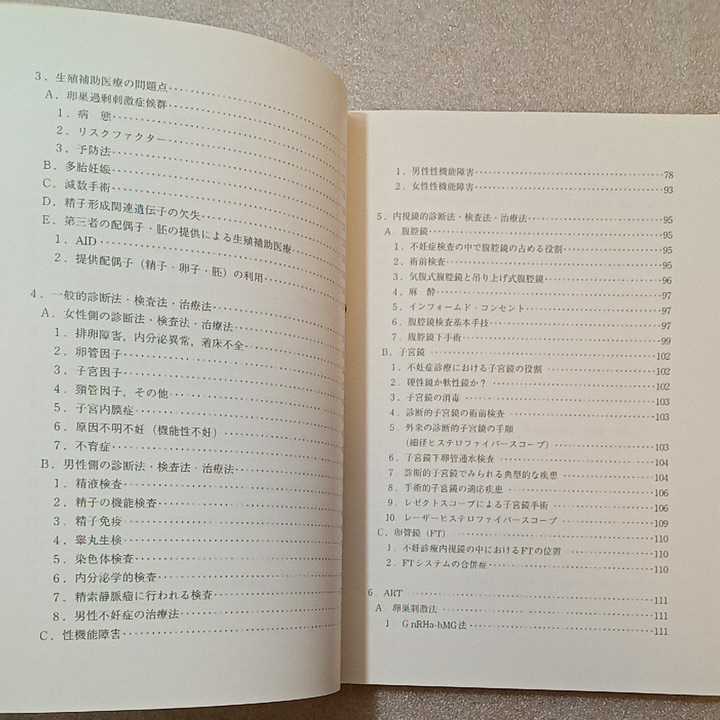 3．生殖補助医療の問題点
A．卵巣過剰刺激症候群
1．病　態
2．リスクファクター
3．予防法
B．多胎妊娠
C．減数手術
D．精子形成関連遺伝子の欠失
E．第三者の配偶子・胚の提供による生殖補助医療
1．AID
2．提供配偶子（精子・卵子・胚）の利用
4．一般的診断法・検査法・治療法
A．女性側の診断法・検査法・治療法
1．排卵障害，内分泌異常，着床不全
2．卵管因子
3．子宮因子
4．頸管因子，その他
5．子宮内膜症
6．原因不明不妊（機能性不妊）
7．不育症
B．男性側の診断法・検査法・治療法
1．精液検査
2．精子の機能検査
3．精子免疫
4．睾丸生検
5．染色体検査
6．内分泌学的検査
7．精索静脈瘤に行われる検査
8．男性不妊症の治療法
C．性機能障害
1．男性性機能障害 78
2．女性性機能障害 93
5．内視鏡的診断法・検査法・治療法 95
A．腹腔鏡 95
1．不妊症検査の中で腹腔鏡の占める役割 95
2．術前検査 95
3．気腹式腹腔鏡と吊り上げ式腹腔鏡 96
4．麻　酔 97
5．インフォームド・コンセント 97
6．腹腔鏡検査基本手技 97
7．腹腔鏡下手術 99
B．子宮鏡 102
1．不妊症診療における子宮鏡の役割 102
2．硬性鏡か軟性鏡か？ 102
3．子宮鏡の消毒 103
4．診断的子宮鏡の術前検査 103
5．外来の診断的子宮鏡の手順
（細径ヒステロファイバースコープ） 103
6．子宮鏡下卵管通水検査 104
7．診断的子宮鏡でみられる典型的な疾患 104
8．手術的子宮鏡の適応疾患 106
9．レゼクトスコープによる子宮鏡手術 106
10．レーザーヒステロファイバースコープ 109
C．卵管鏡（FT） 110
1．不妊診療内視鏡の中におけるFTの位置 110
2．FTシステムの合併症 110
6．ART 111
A．卵巣刺激法 111
1．GnRHa-hMG法 111